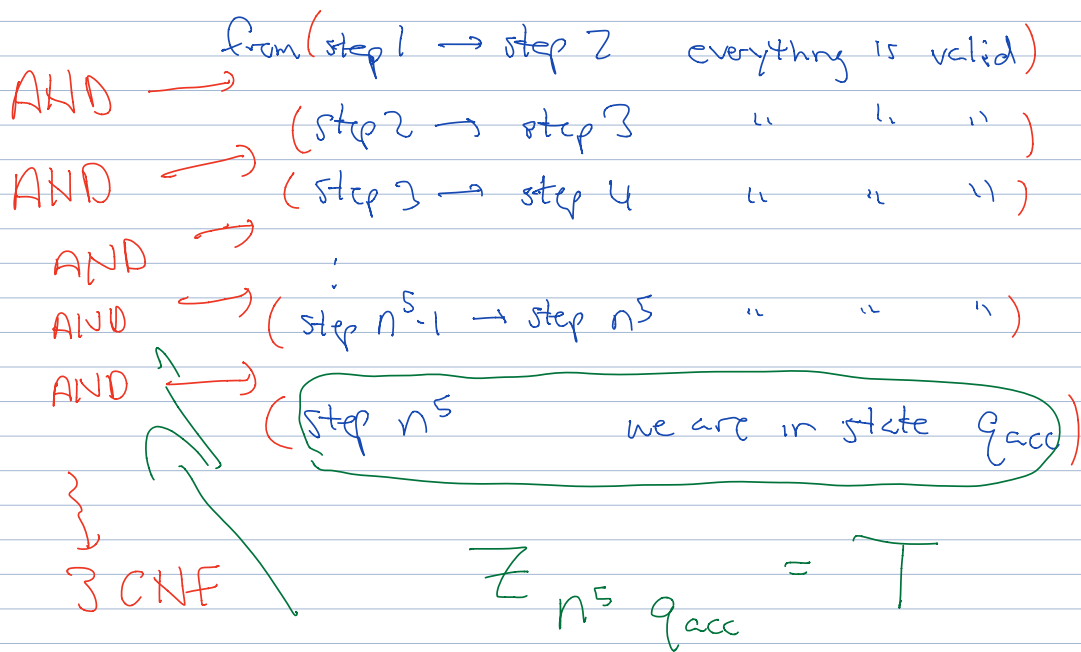 from (step 1 → step 2 everything is valid)
AND → (step 2 → step 3 " " ")
AND → (step 3 → step 4 " " ")
AND → :
AND → (step n^5-1 → step n^5 " " ")
AND → (step n^5 we are in state q_acc)
}
3 CNF
Z_{n^5 q_acc} = T